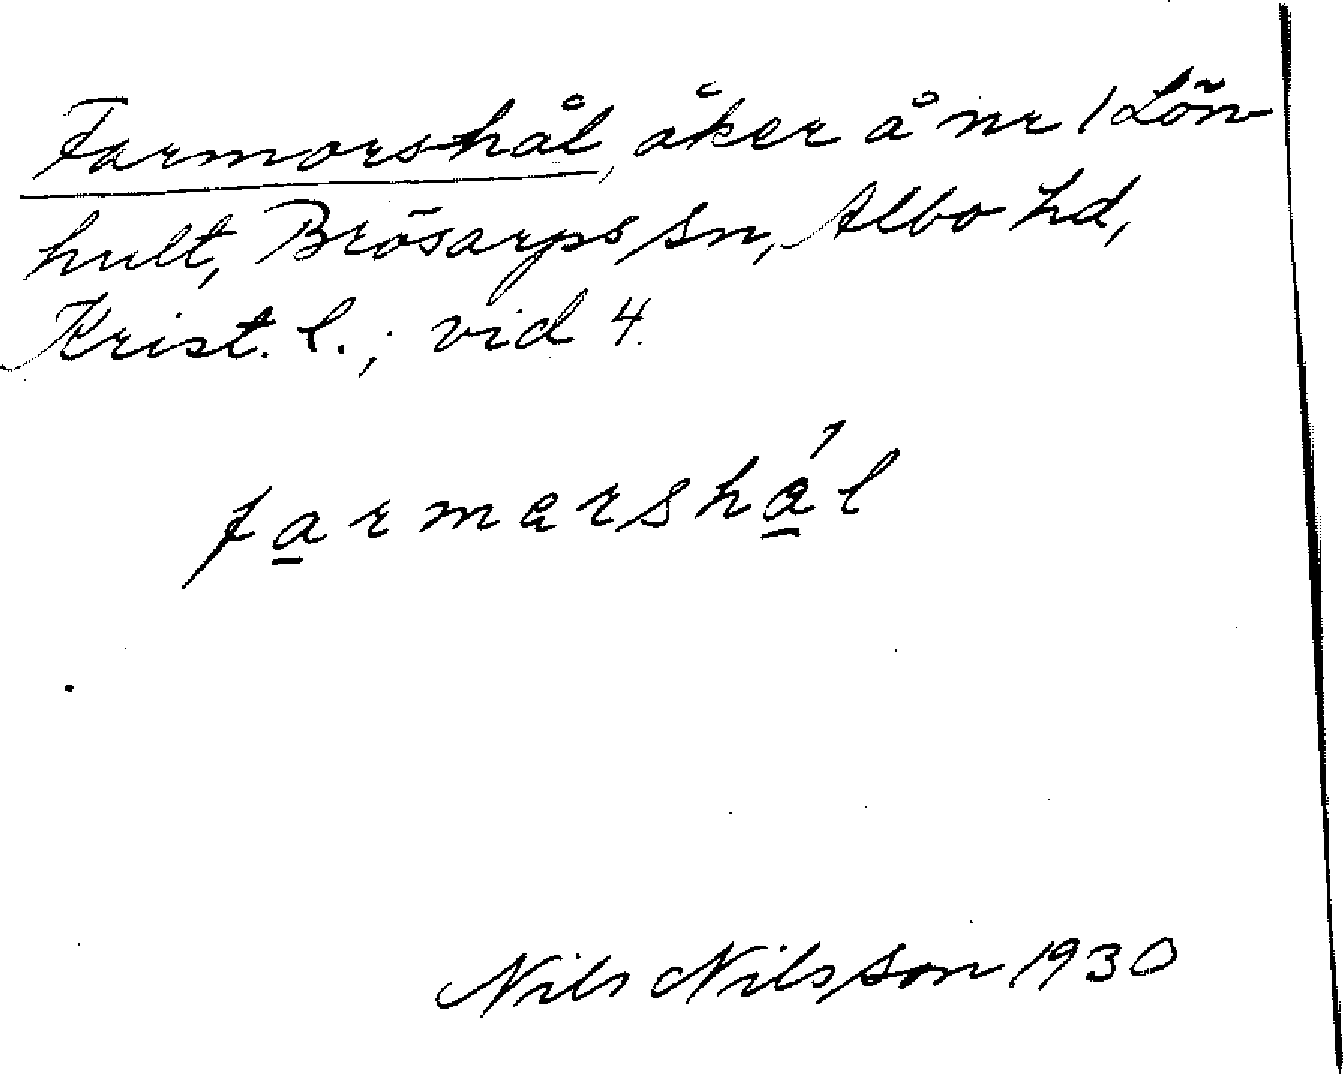 Farmorshål, åker å nr 1 Lön-
hult, Brösarps sn, Albo hd,
Krist. l.; vid 4.
farmarshá̱l
Nils Nilsson 1930